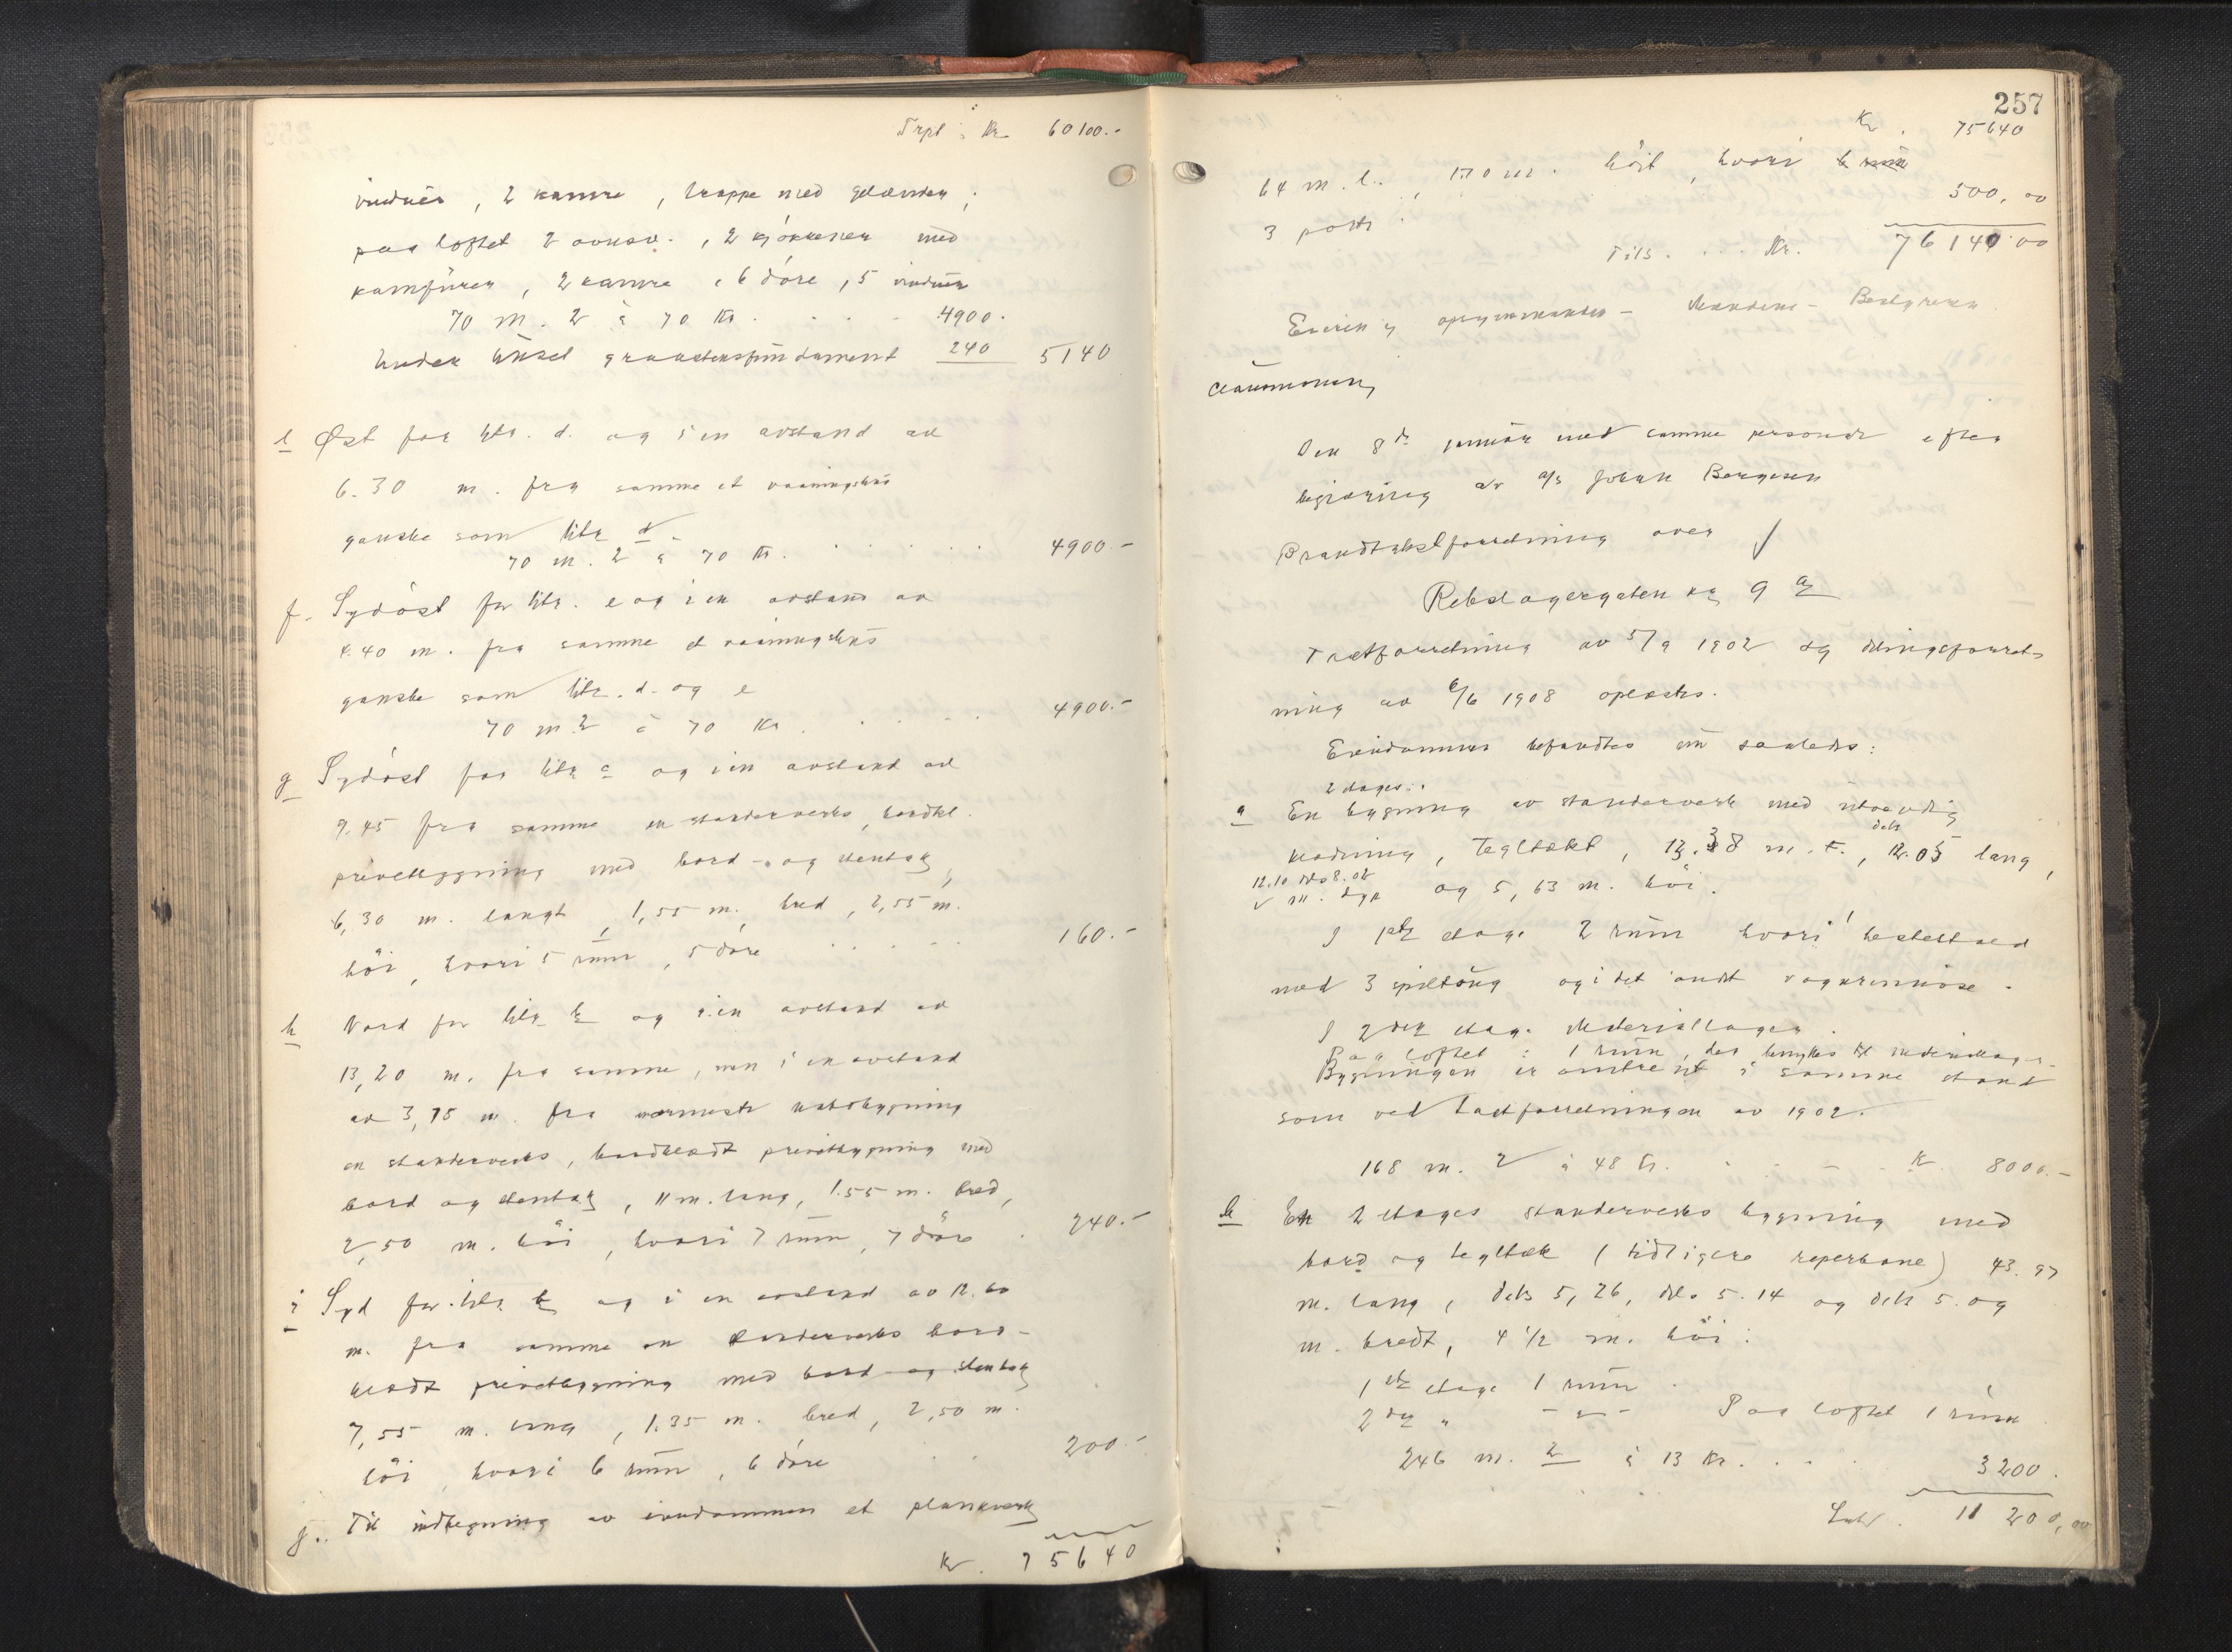 Trpt: Kr. 60100.-
vinduer, 2 kamre, trappe med gelænder;
paa loftet 2 ovnsv., 2 kjøkkener med
komfürer, 2 kamre, 6 döre, 5 vinduer
70 m. 2 à 70 Kr. . . . 4900.
Under hüset graastensfündament 240 5140
e Øst for litr. d. og i en avstand av
6.30 m. fra samme et vaaningshüs
ganske som litr d.
70 m. 2 à 70 Kr. . . . . . 4900.-
f. Sydöst for litr. e og i en avstand av
4.40 m. fra samme et vaaningshüs
ganske som litr. d. og e
70 m. 2 à 70 Kr. . . . . 4900.-
g Sydöst for litr c og i en avstand av
9.45 fra samme en standerverks, bordkl.
privetbygning med bord- og stentag,
6,30 m. langt, 1,55 m. bred, 2,55 m.
höi, hvori 5 rüm, 5 döre . . . . . 160.-
h Nord for litr b og i en avstand av
13,20 m. fra samme, men i en avstand
av 3,75 m. fra nærmeste nabobygning
en standerverks, bordklædt privetbygning med
bord og stentag, 11 m. lang, 1.55 m. bred,
2,50 m. höi, hvori 7 rüm, 7 döre . 240.-
i Syd for litr b og i en avstand av 12.60
m. fra samme en standerverks bord-
klædt privetbygning med bord- og stentag
7,55 m. lang, 1.35 m. bred, 2,50 m.
höi, hvori 6 rüm, 6 döre . . 200.-
j. Til indhegning av eiendommen et plankeverk
Kr. 75640
257
Kr. 75640
64 m. l., 1.70 m. höit, hvori 6 rüm
3 porte . 500,00
Tils. . . . Kr. 76140.00
Eiering
Den 8de januar med samme personale efter
begjæring av A/s Johan Borgesen
Brandtakstforretning over
Rebslagergaten No 9 a
Taxtforretning av 5/9 1902 og delingsforret-
ning av 6/6 1908 oplæstes.
Eiendommen befandtes nü saaledes:
2 etages
a En bygning av standerverk med utvendig
klædning, tegltækt, 13.38 m. l., dels 12.05 lang,
12.10 dels 8.02
m. dyp og 5,63 m. höi.
I 1ste etage 2 rüm hvori hestestald
med 3 spiltöug og i det andet vognremisse.
I 2den etage Materiallager.
Paa loftet: 1 rüm, der benyttes til materiallager
Bygningen er omtrent i samme stand
som ved taxtforretningen av 1902.
168 m. 2 à 48 Kr. . . . . Kr. 8000.-
b En 2 etages standerverks bygning med
bord og tegltak (tidligere reperbane) 43.97
m. lang, dels 5,26, dels 5.14 og dels 5.09
m. bredt, 4 1/2 m. höi:
1ste etage 1 rüm .
2den " - " - Paa loftet 1 rüm
246 m. 2 à 13 Kr. . . . 3200.
11 200,00